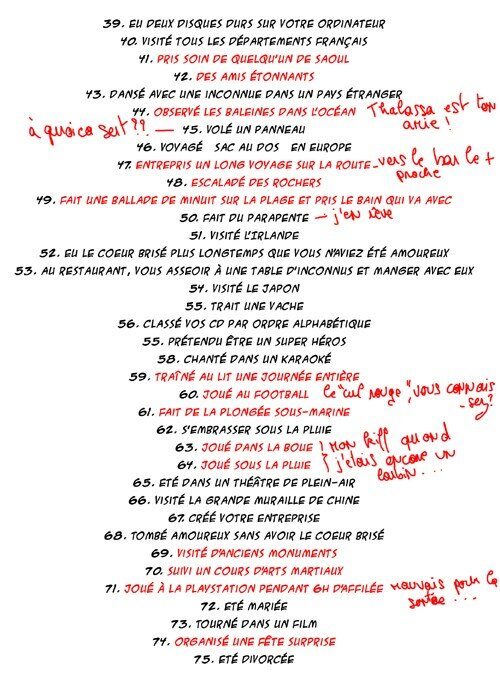 39. EU DEUX DISQUES DURS SUR VOTRE ORDINATEUR
40. VISITÉ TOUS LES DÉPARTEMENTS FRANÇAIS
41. PRIS SOIN DE QUELQU'UN DE SAOUL
42. DES AMIS ÉTONNANTS
43. DANSÉ AVEC UNE INCONNUE DANS UN PAYS ÉTRANGER
44. OBSERVÉ LES BALEINES DANS L'OCÉAN Thalassa est ton amie !
à quoi ca sert ?? — 45. VOLÉ UN PANNEAU
46. VOYAGÉ SAC AU DOS EN EUROPE
47. ENTREPRIS UN LONG VOYAGE SUR LA ROUTE - vers le bar le + proche
48. ESCALADÉ DES ROCHERS
49. FAIT UNE BALLADE DE MINUIT SUR LA PLAGE ET PRIS LE BAIN QUI VA AVEC
50. FAIT DU PARAPENTE — j'en rêve
51. VISITÉ L'IRLANDE
52. EU LE COEUR BRISÉ PLUS LONGTEMPS QUE VOUS N'AVIEZ ÉTÉ AMOUREUX
53. AU RESTAURANT, VOUS ASSEOIR À UNE TABLE D'INCONNUS ET MANGER AVEC EUX
54. VISITÉ LE JAPON
55. TRAIT UNE VACHE
56. CLASSÉ VOS CD PAR ORDRE ALPHABÉTIQUE
55. PRÉTENDU ÊTRE UN SUPER HÉROS
58. CHANTÉ DANS UN KARAOKÉ
59. TRAÎNÉ AU LIT UNE JOURNÉE ENTIÈRE
60. JOUÉ AU FOOTBALL le "cul rouge", vous connaissez?
61. FAIT DE LA PLONGÉE SOUS-MARINE
62. S'EMBRASSER SOUS LA PLUIE
63. JOUÉ DANS LA BOUE } Mon kiff quand
64. JOUÉ SOUS LA PLUIE } j'étais encore un
65. ETÉ DANS UN THÉÂTRE DE PLEIN-AIR
66. VISITÉ LA GRANDE MURAILLE DE CHINE
67. CRÉÉ VOTRE ENTREPRISE
68. TOMBÉ AMOUREUX SANS AVOIR LE COEUR BRISÉ
69. VISITÉ D'ANCIENS MONUMENTS
70. SUIVI UN COURS D'ARTS MARTIAUX
71. JOUÉ À LA PLAYSTATION PENDANT 6H D'AFFILÉE mauvais pour la
72. ETÉ MARIÉE
73. TOURNÉ DANS UN FILM
74. ORGANISÉ UNE FÊTE SURPRISE
75. ETÉ DIVORCÉE